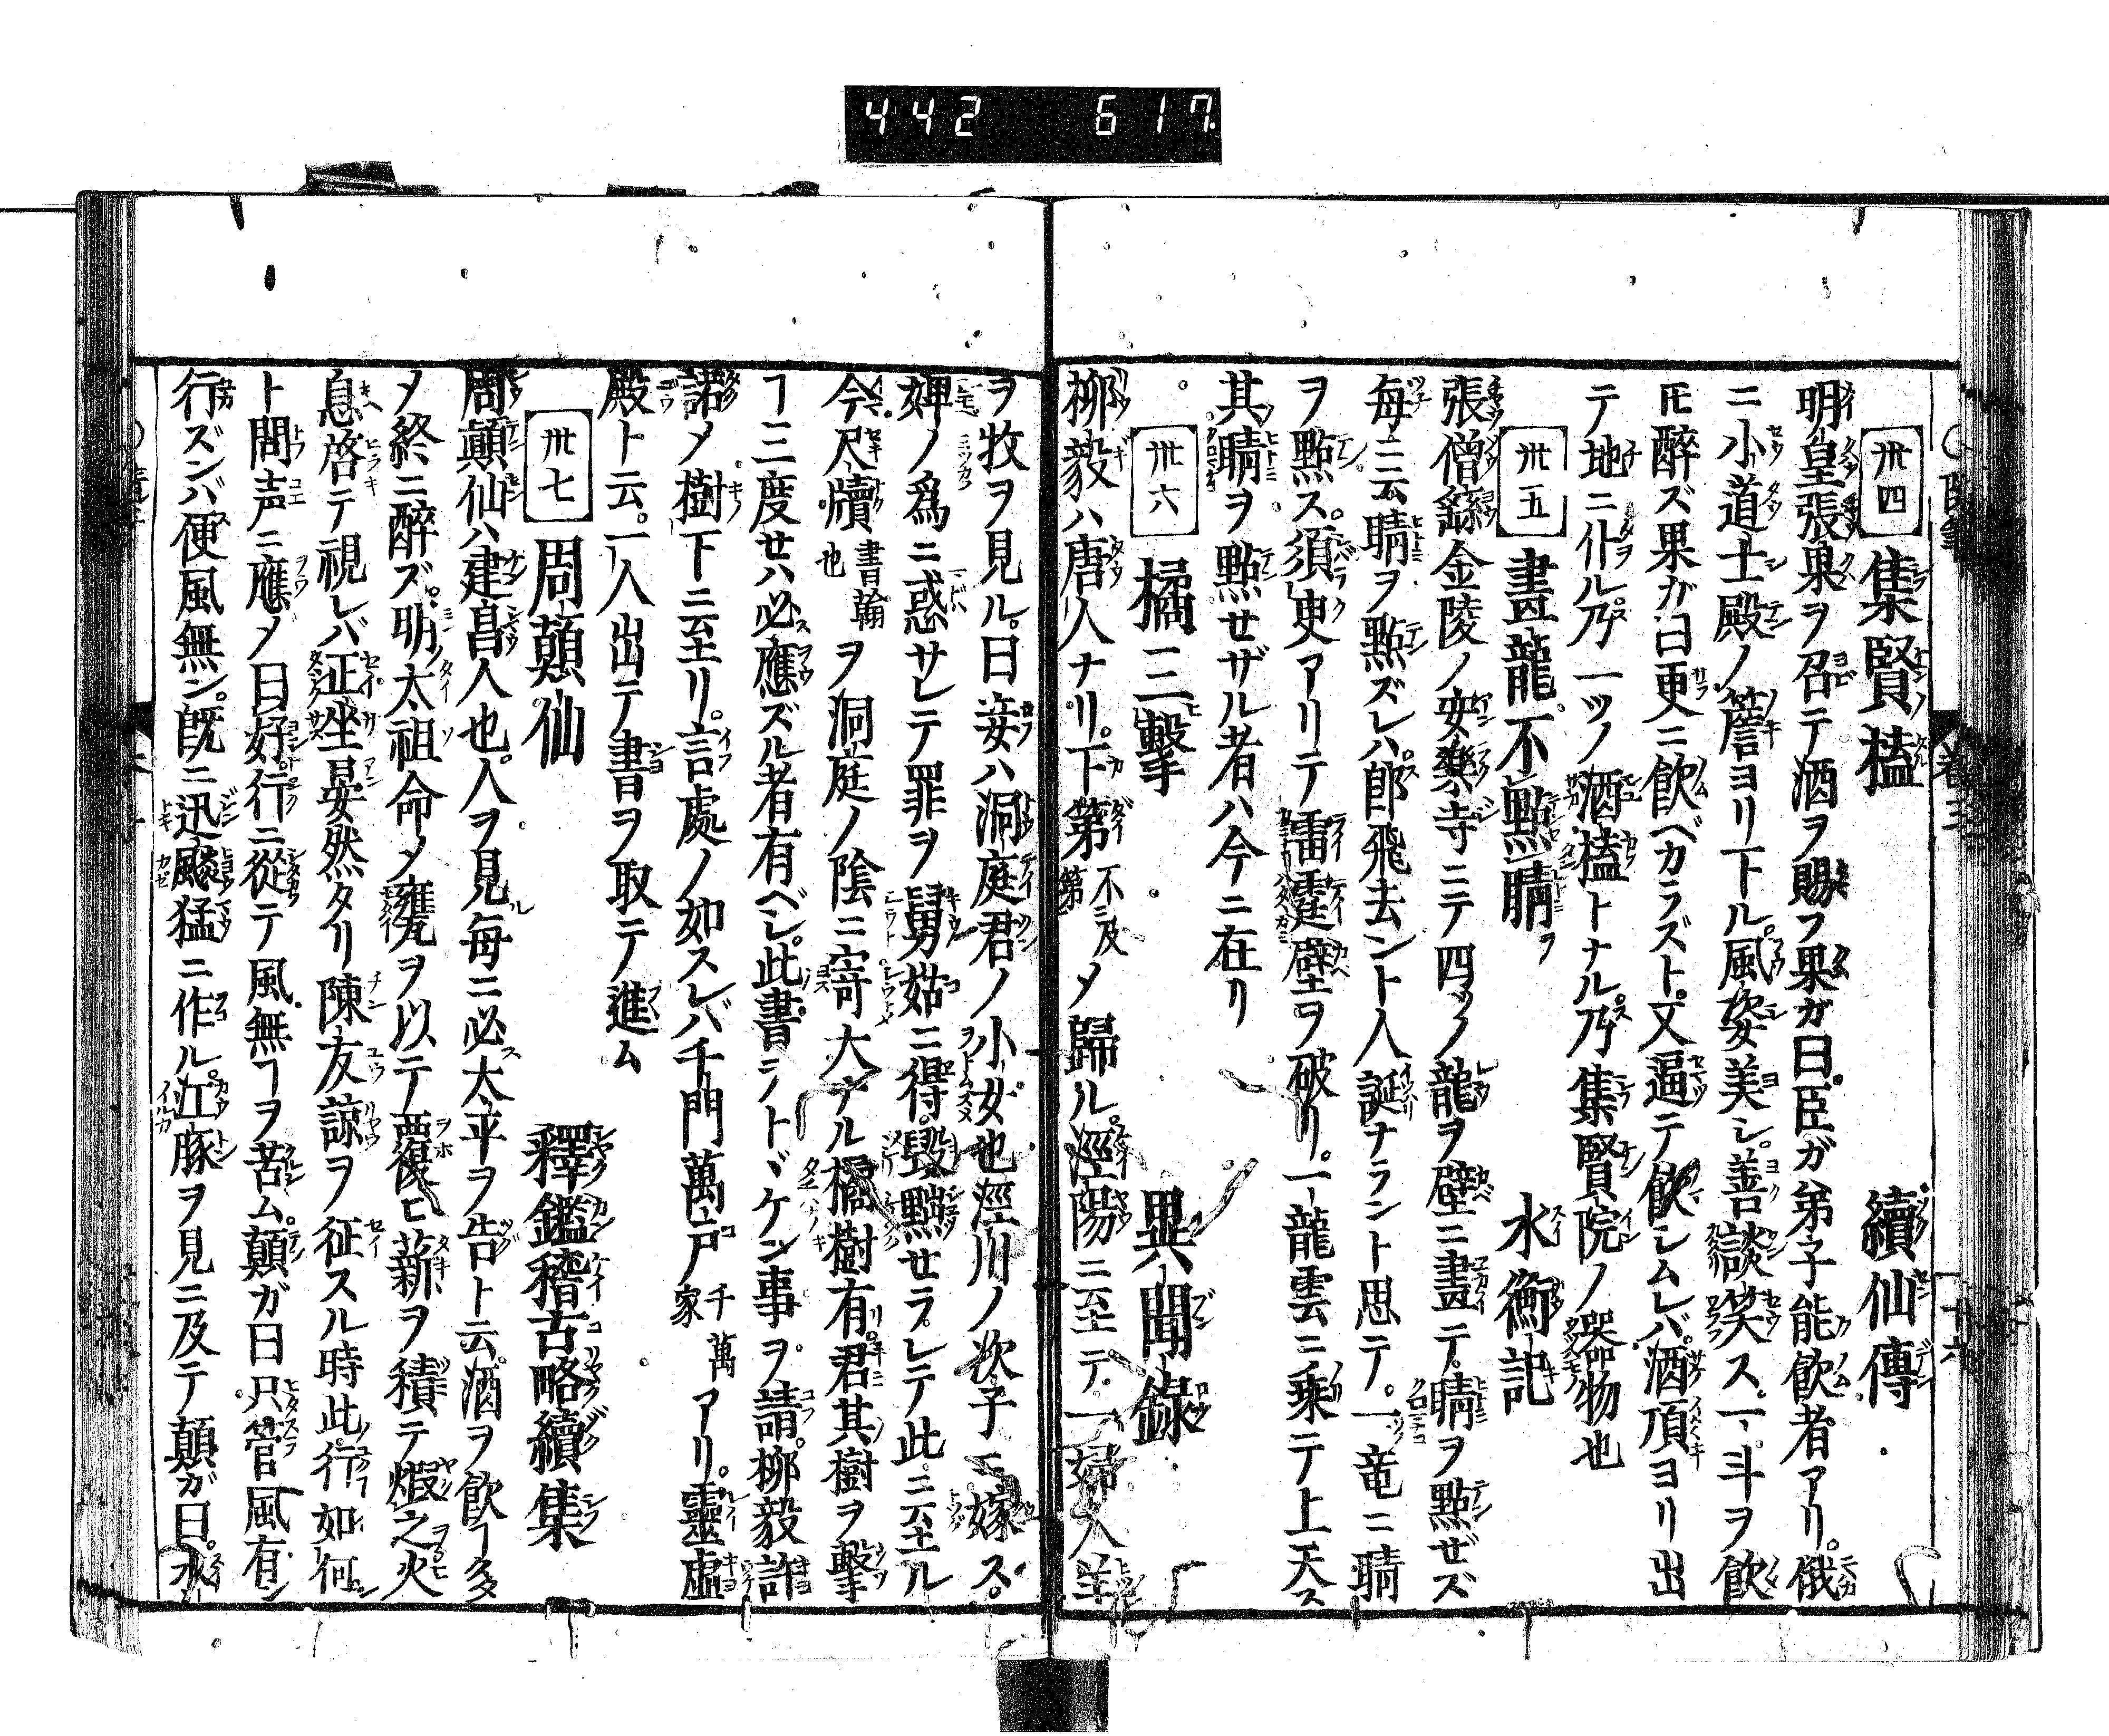 442 617
卅四 集賢榼 續仙傳
明皇張果ヲ召テ酒ヲ賜フ果ガ曰臣ガ弟子能飲者アリ。俄
ニ小道士殿ノ簷ヨリ下ル。風姿美シ。善談笑ス。一斗ヲ飲
𪜈醉ズ果ガ曰更ニ飲ベカラズト。又逼テ飲シムレバ。酒頂ヨリ出
テ地ニ仆ル乃一ツノ酒榼トナル乃集賢院ノ器物也
卅五 畫龍不點睛ヲ 水衡記
張僧繇金陵ノ安樂寺ニテ四ツノ龍ヲ壁ニ畫テ睛ヲ點ゼズ
毎ニ云睛ヲ點ズレハ即飛去ント人誕ナラント思テ。一竜ニ睛
ヲ點ス。須臾アリテ雷霆壁ヲ破リ。一龍雲ニ乗テ上天ス
其睛ヲ點せザル者ハ今ニ在リ
卅六 橘三擊 異聞錄
柳毅ハ唐人ナリ。下第不及第メ歸ル。涇陽ニ至テ。一婦人羊
ヲ牧ヲ見ル。曰妾ハ洞庭君ノ小女也涇川ノ次子ニ嫁ス。
婢ノ爲ニ惑サレテ罪ヲ舅姑ニ得。毀黜せラレテ此ニ至ル
今尺牘書翰也ヲ洞庭ノ陰ニ寄大ナル橘樹有。君其樹ヲ擊
ヿ三度せハ必應ズル者有ベシ。此書ヲトヾケン事ヲ請。柳毅許
諾メ樹下ニ至リ。言處ノ如スレバ千門萬戸千萬家アリ。靈虛
殿ト云。一人出テ書ヲ取テ進ム
卅七 周顛仙 釋鑑稽古略續集
周顛仙ハ建昌人也。人ヲ見毎ニ必太平ヲ告ト云。酒ヲ飲ヿ多
メ終ニ醉ズ。明ノ太祖命メ甕ヲ以テ覆ヒ薪ヲ積テ煆之火
息啓テ視レバ正坐晏然タリ陳友諒ヲ征スル時此行如何
ト問声ニ應メ曰好行ニ從テ風無ヿヲ苦ム。顛ガ曰只管風有
行ズンバ便風無ン。既ニ迅飈猛ニ作ル。江豚ヲ見ニ及テ顛ガ曰。水